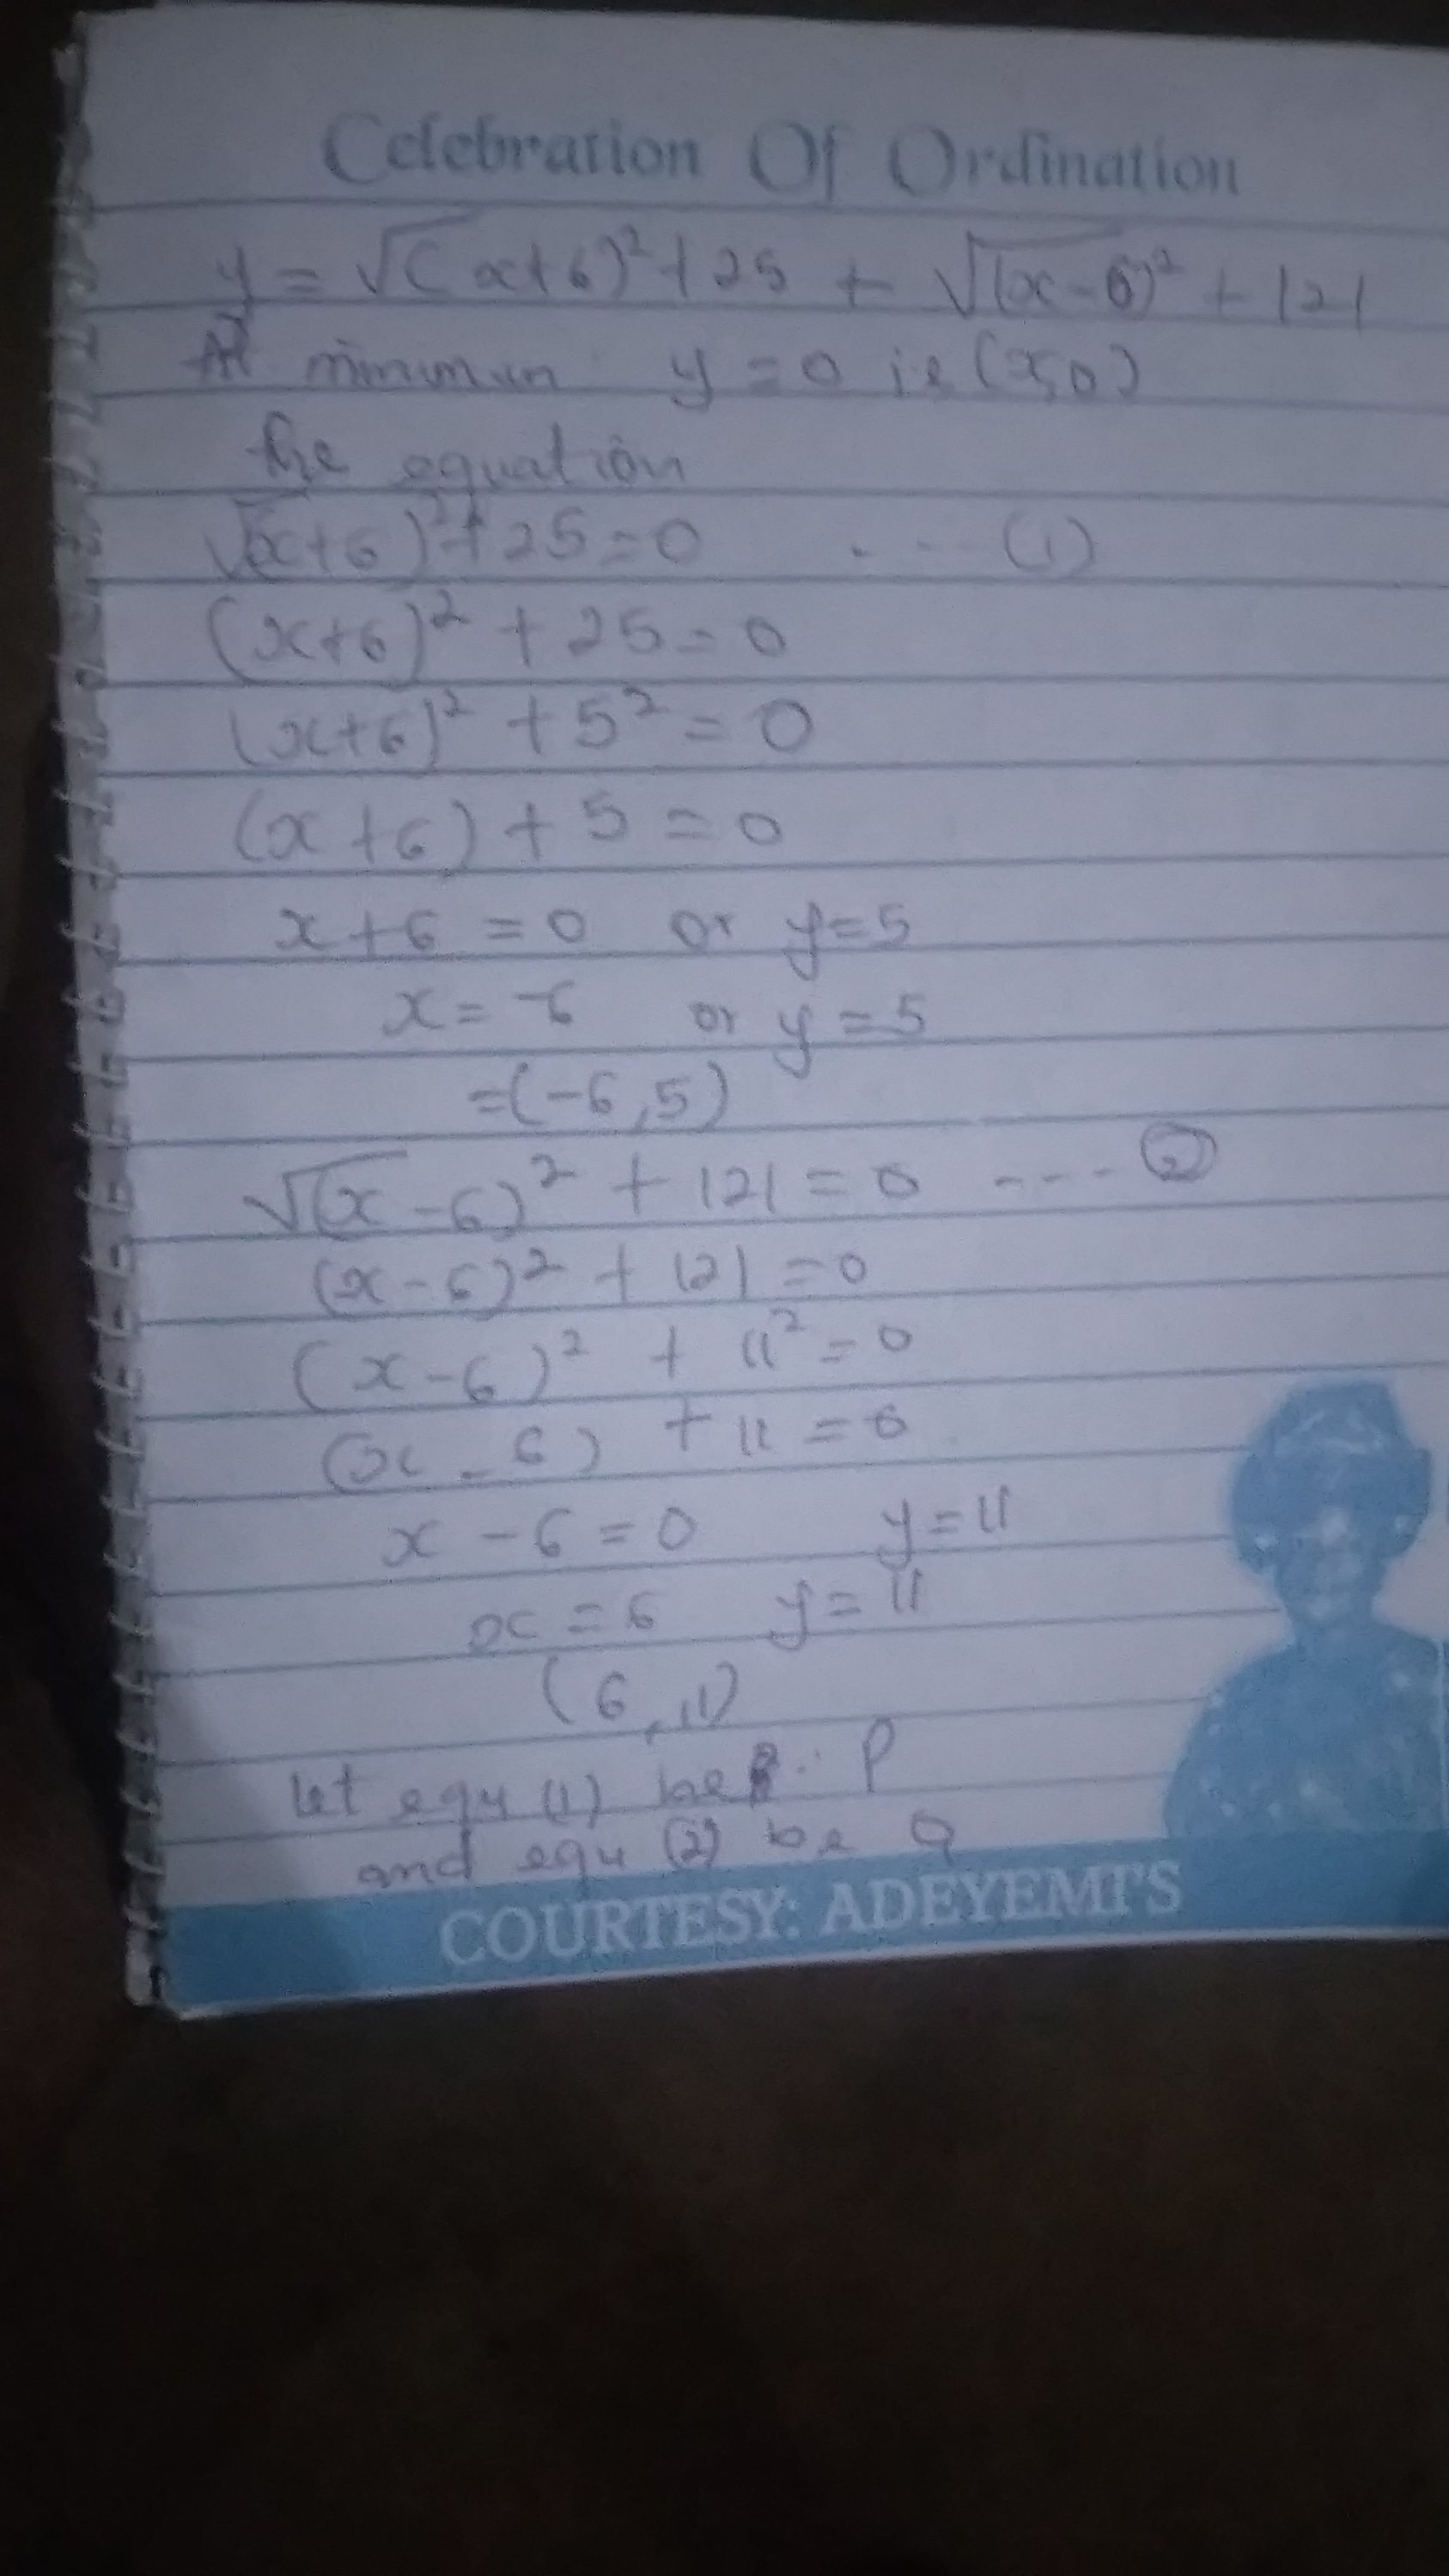 Celebration Of Ordination
y = √(x+6)²+25 + √(x-6)² + 121
At minimum y = 0 i.e (x,0)
the equation
√(x+6)²+25=0 ---- (1)
(x+6)² + 25 = 0
(x+6)² + 5² = 0
(x+6) + 5 = 0
x+6 = 0 or y=5
x = -6 or y = 5
=(-6,5)
√(x-6)² + 121 = 0 ---- (2)
(x-6)² + 121 = 0
(x-6)² + 11² = 0
(x-6) + 11 = 0
x - 6 = 0 y = 11
x = 6 y = 11
(6,11)
Let equ (1) be P
and equ (2) be Q
COURTESY: ADEYEMI'S